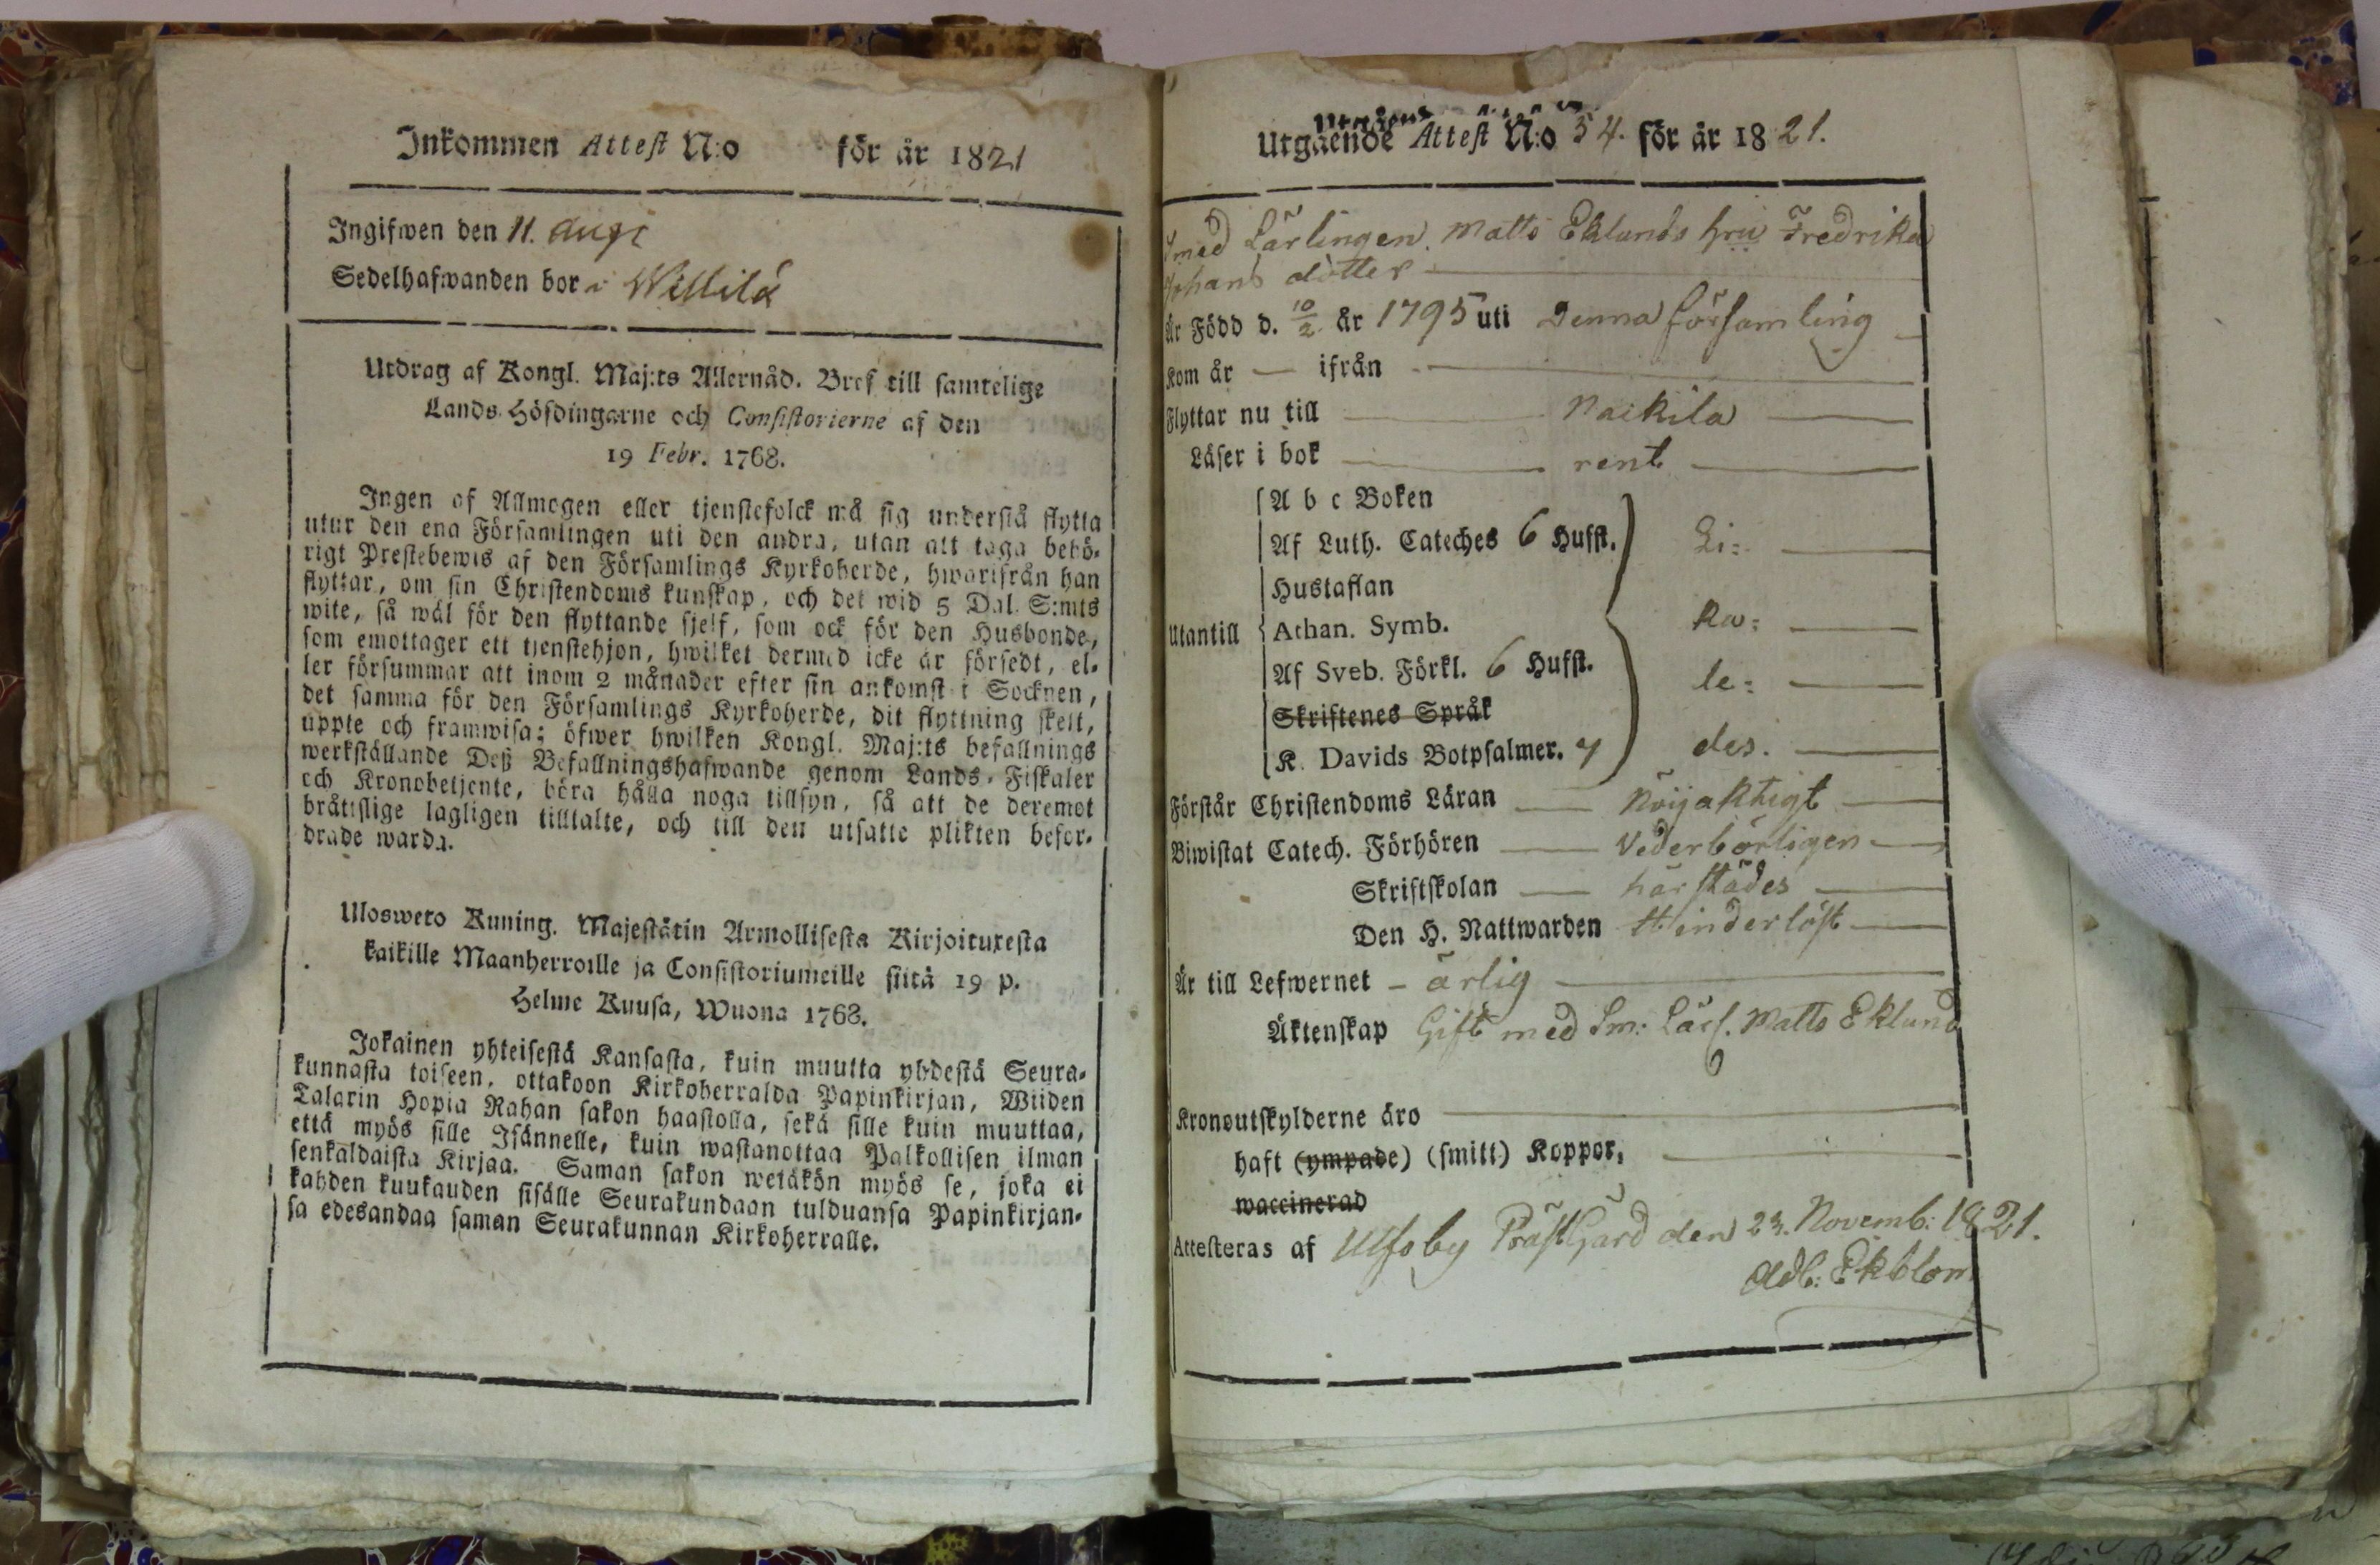 Inkommen Attest N:o för år 1821
Ingifwen den 11. Aug
Sedelhafwanden bor i Willilä
Utdrag af Kongl. Maj:ts Allernåd. Bref till samtelige
Lands-Höfdingarne och Consistorierne af den
19 Febr. 1768.
Ingen af Allmogen eller tjenstefolck må sig understå flytta
utur den ena Församlingen uti den andra, utan att taga behö-
rigt Prestebewis af den Församlings Kyrkoherde, hwarifrån han
flyttar, om sin Christendoms kunskap, och det wid 5 Dal. S:mts
wite, så wäl för den flyttande sjelf, som ock för den Husbonde,
som emottager ett tjenstehjon, hwilket dermed icke är försedt, el-
ler försummar att inom 2 månader efter sin ankomst i Socknen,
det samma för den Församlings Kyrkoherde, dit flyttning skett,
uppte och framwisa; öfwer hwilken Kongl. Maj:ts befallnings
werkställande Deß Befallningshafwande genom Lands-Fiskaler
och Kronobetjente, böra hålla noga tillsyn, så att de deremot
bråttslige lagligen tilltalte, och till den utsatte plikten befor-
drade warda.
Ulosweto Kuning. Majestätin Armollisesta Kirjoituxesta
kaikille Maanherroille ja Consistoriumeille siitä 19 p.
Helme Kuusa, Wuona 1768.
Jokainen yhteisestä Kansasta, kuin muutta yhdestä Seura-
kunnasta toiseen, ottakoon Kirkoherralda Papinkirjan, Wiiden
Talarin Hopia Rahan sakon haastolla, sekä sille kuin muuttaa,
että myös sille Isännelle, kuin wastanottaa Palkollisen ilman
senkaldaista Kirjaa. Saman sakon wetäkön myös se, joka ei
kahden kuukauden sisälle Seurakundaan tulduansa Papinkirjan-
sa edesandaa saman Seurakunnan Kirkoherralle.
Utgående Attest N:o 54. för år 1821.
Smed Lärlingen Matts Eklunds hru Fredrika
Johans dotter
Är Född d. 10/2 år 1795 uti Denna församling
Kom år — ifrån
Flyttar nu till Nackila
Läser i bok rent
A b c Boken
Af Luth. Cateches 6 Hufst. Li:
Hustaflan
Utantill Athan. Symb. ka:
Af Sveb. Förkl. 6 Hufst. le:
Skriftenes Språk
K. Davids Botpsalmer. 7 des.
Förstår Christendoms Läran Nöijaktigt
Biwistat Catech. Förhören Vederbörligen
Skriftskolan härstädes
Den H. Nattwarden Hinderlöst
Är till Lefwernet – ärlig
Äktenskap Gift med Sm: Lärl. Matts Eklund
Kronoutskylderne äro
haft (ympade) (smitt) Koppor,
waccinerad
Attesteras af Ulfsby PrästGård den 23. Novemb: 1821.
Adl: Ekblom